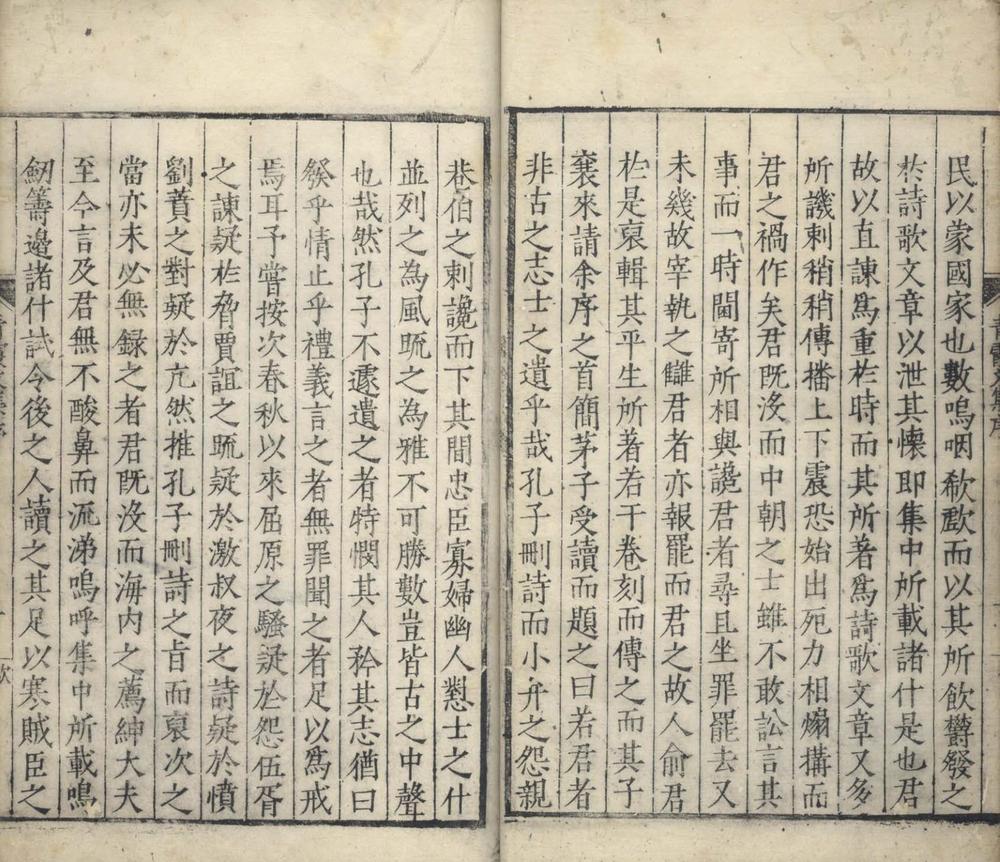 民以蒙國家也數嗚咽欷歔而以其所飲欝發之
於詩歌文章以泄其懷即集中所載諸什是也君
故以直諫爲重於時而其所著爲詩歌文章又多
所譏刺稍稍傳播上下震恐始出死力相煽搆而
君之禍作矣君旣沒而中朝之士雖不敢訟言其
事而一時閫寄所相與讒君者尋且坐罪罷去又
未幾故宰執之讎君者亦報罷而君之故人俞君
於是裒輯其平生所著若干卷刻而傳之而其子
襄來請余序之首簡茅子受讀而題之曰若君者
非古之志士之遺乎哉孔子刪詩而小弁之怨親
巷伯之刺讒而下其間忠臣寡婦幽人懟士之什
並列之為風䟽之為雅不可勝數豈皆古之中聲
也哉然孔子不遽遺之者特憫其人矜其志猶曰
發乎情止乎禮義言之者無罪聞之者足以爲戒
焉耳予嘗按次春秋以來屈原之騷疑於怨伍胥
之諫疑於脅賈誼之䟽疑於激叔夜之詩疑於憤
劉蕡之對疑於亢然推孔子刪詩之旨而裒次之
當亦未必無録之者君旣沒而海内之薦紳大夫
至今言及君無不酸鼻而流涕嗚呼集中所載鳴
劒籌邊諸什試令後之人讀之其足以寒賊臣之